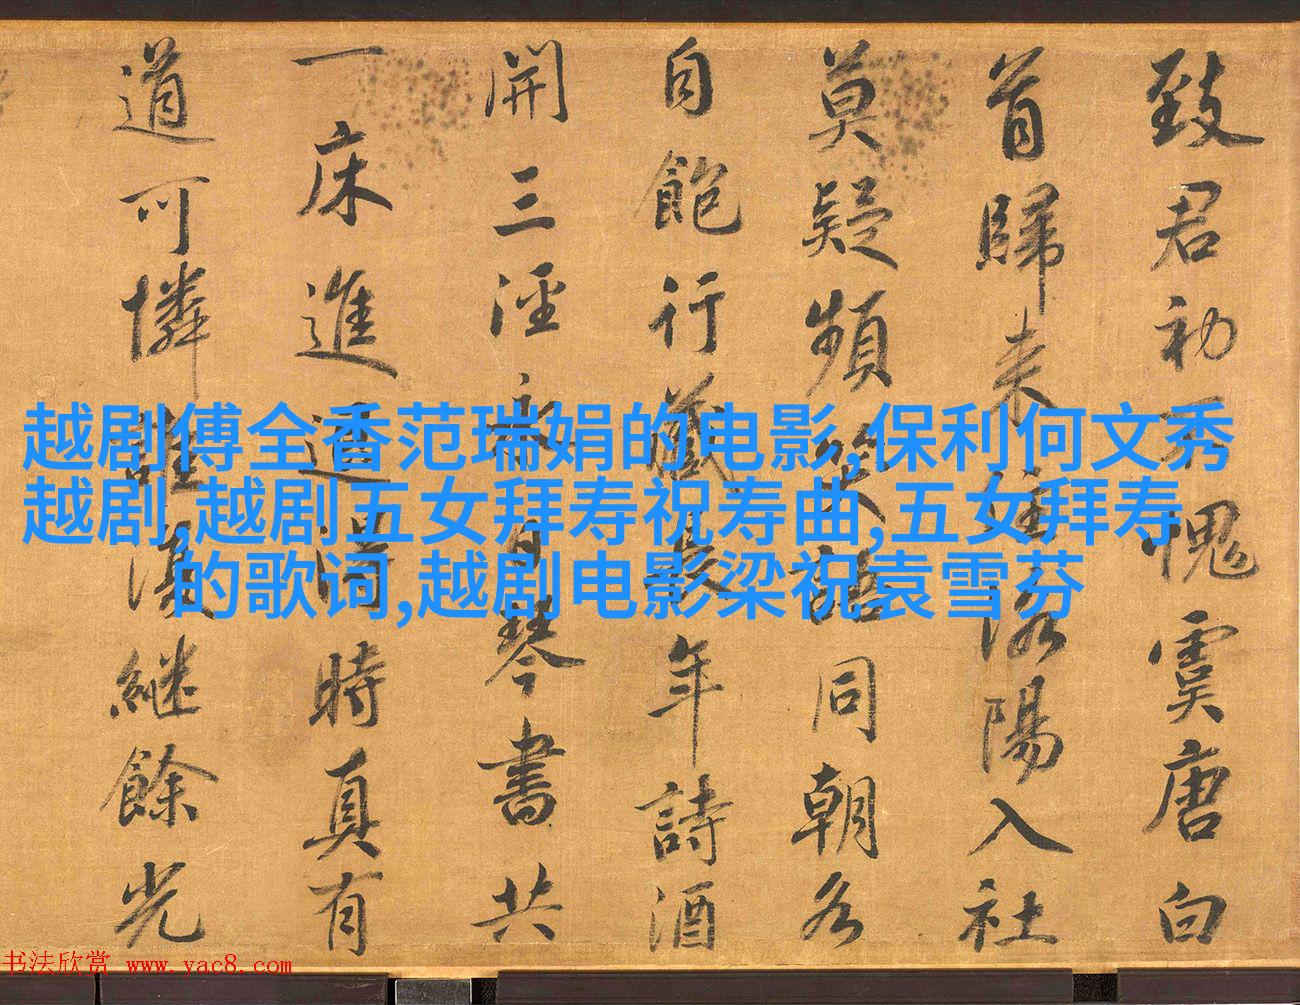 致君初不愧虞唐白
首歸来住洛陽入社
莫疑頻笑語同朝各
自飽行藏長年詩酒
開三涇永日琴書共
一床進退得時真有
道可憐誰復繼餘光
越剧傅全香范瑞娟的电影,保利何文秀
越剧,越剧五女拜寿祝寿曲,五女拜寿
的歌词,越剧电影梁祝袁雪芬
书法欣赏 www.yac8.com